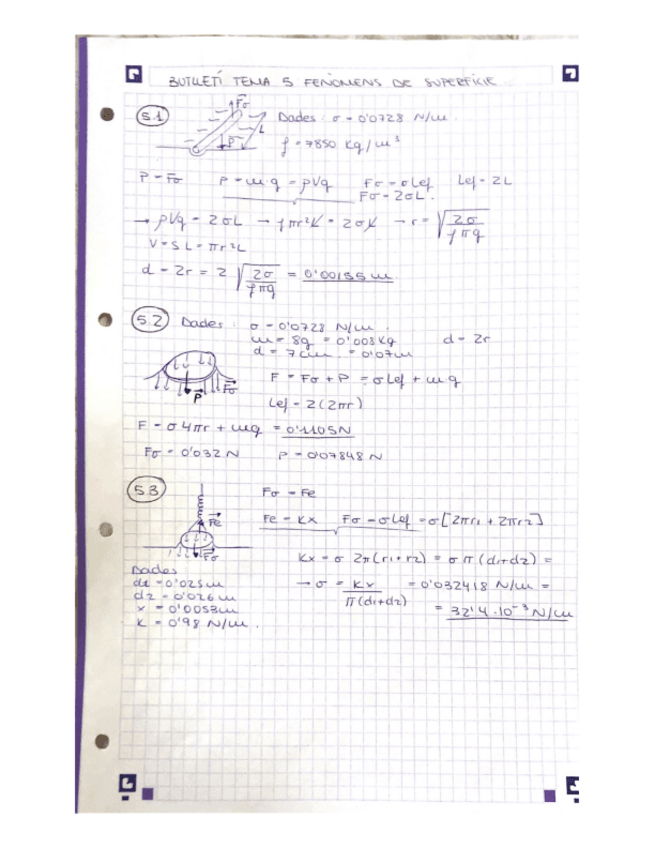 BUTLLETÍ TEMA 5 FENÒMENS DE SUPERFÍCIE
5.1 Dades: σ = 0'0728 N/m.
ρ = 7850 Kg/m³
Fσ
P
L
P = Fσ P = m·g = ρVg Fσ = σLef Lef = 2L
Fσ = 2σL.
→ ρVg = 2σL → ρπr²L = 2σL → r = √(2σ/ρπg)
V = S L = πr²L
d = 2r = 2 √(2σ/ρπg) = 0'00155 m.
5.2 Dades: σ = 0'0728 N/m.
m = 8g = 0'008 Kg d = 2r
d = 7cm. = 0'07m
P Fσ
F = Fσ + P = σLef + mg
Lef = 2(2πr)
F = σ4πr + mg = 0'1105N
Fσ = 0'032 N P = 0'07848 N
5.3 Fσ = Fe
Fe = Kx Fσ = σLef = σ[2πr₁ + 2πr₂]
Fe
Fσ
Kx = σ 2π(r₁+r₂) = σπ(d₁+d₂) =
Dades
d1 = 0'025m
d2 = 0'026m
x = 0'0053m
K = 0'98 N/m.
→ σ = Kx/π(d₁+d₂) = 0'032418 N/m =
= 32'4·10⁻³ N/m